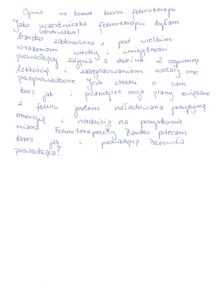 Opinia na temat kursu felinoterapii
Jako uczestniczka felinoterapii byłam
(obserwator)
bardzo zadowolona i pod wielkim
wrażeniem wiedzy i umiejętności
prowadzącej zajęcia z dziećmi. Z ogromną
lekkością i zaangażowaniem zostały one
przeprowadzone. Jeśli chodzi o sam
kurs jak i późniejsze moje plany związane
z felino jestem naładowana pozytywną
energią i nadzieją na pozyskanie
miana Felinoterapeuty. Bardzo polecam
kurs jak i prowadzącą
prowadzącą!